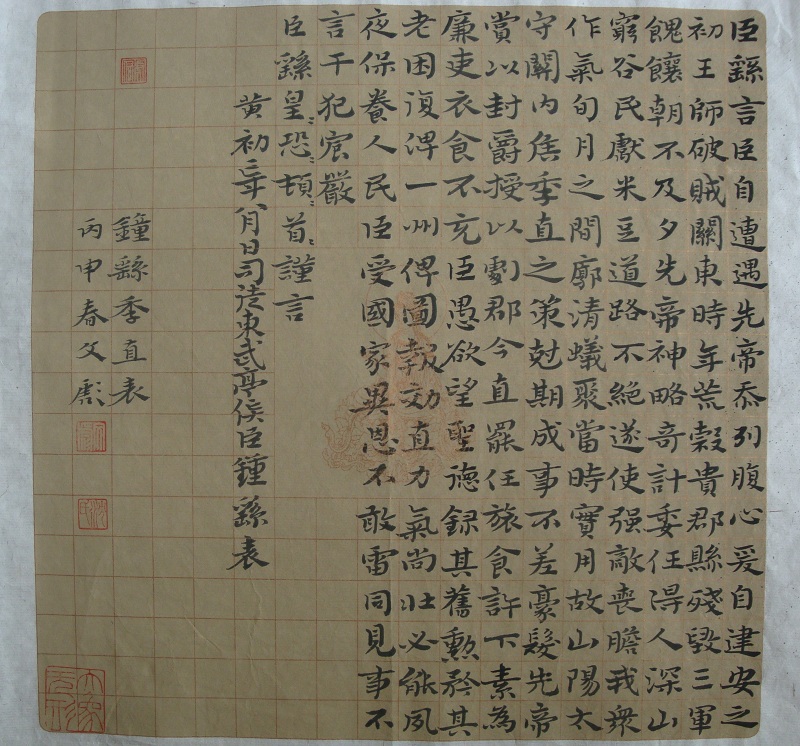 臣繇言臣自遭遇先帝忝列腹心爰自建安之
初王師破賊關東時年荒穀貴郡縣殘毀三軍
餽饟朝不及夕先帝神略奇計委任得人深山
窮谷民獻米豆道路不絕遂使强敵喪膽我衆
作氣旬月之間廓清蟻聚當時實用故山陽太
守關內侯季直之策尅期成事不差豪髮先帝
賞以封爵授以劇郡今直罷任旅食許下素為
廉吏衣食不充臣愚欲望聖德録其舊勳矜其
老困復俾一州俾圖報効直力氣尚壯必能夙
夜保養人民臣受國家異恩不敢雷同見事不
言干犯宸嚴
臣繇皇〻恐〻頓〻首〻謹言
黄初二年八月日司徒東武亭侯臣鍾繇表
鐘繇季直表
丙申春文